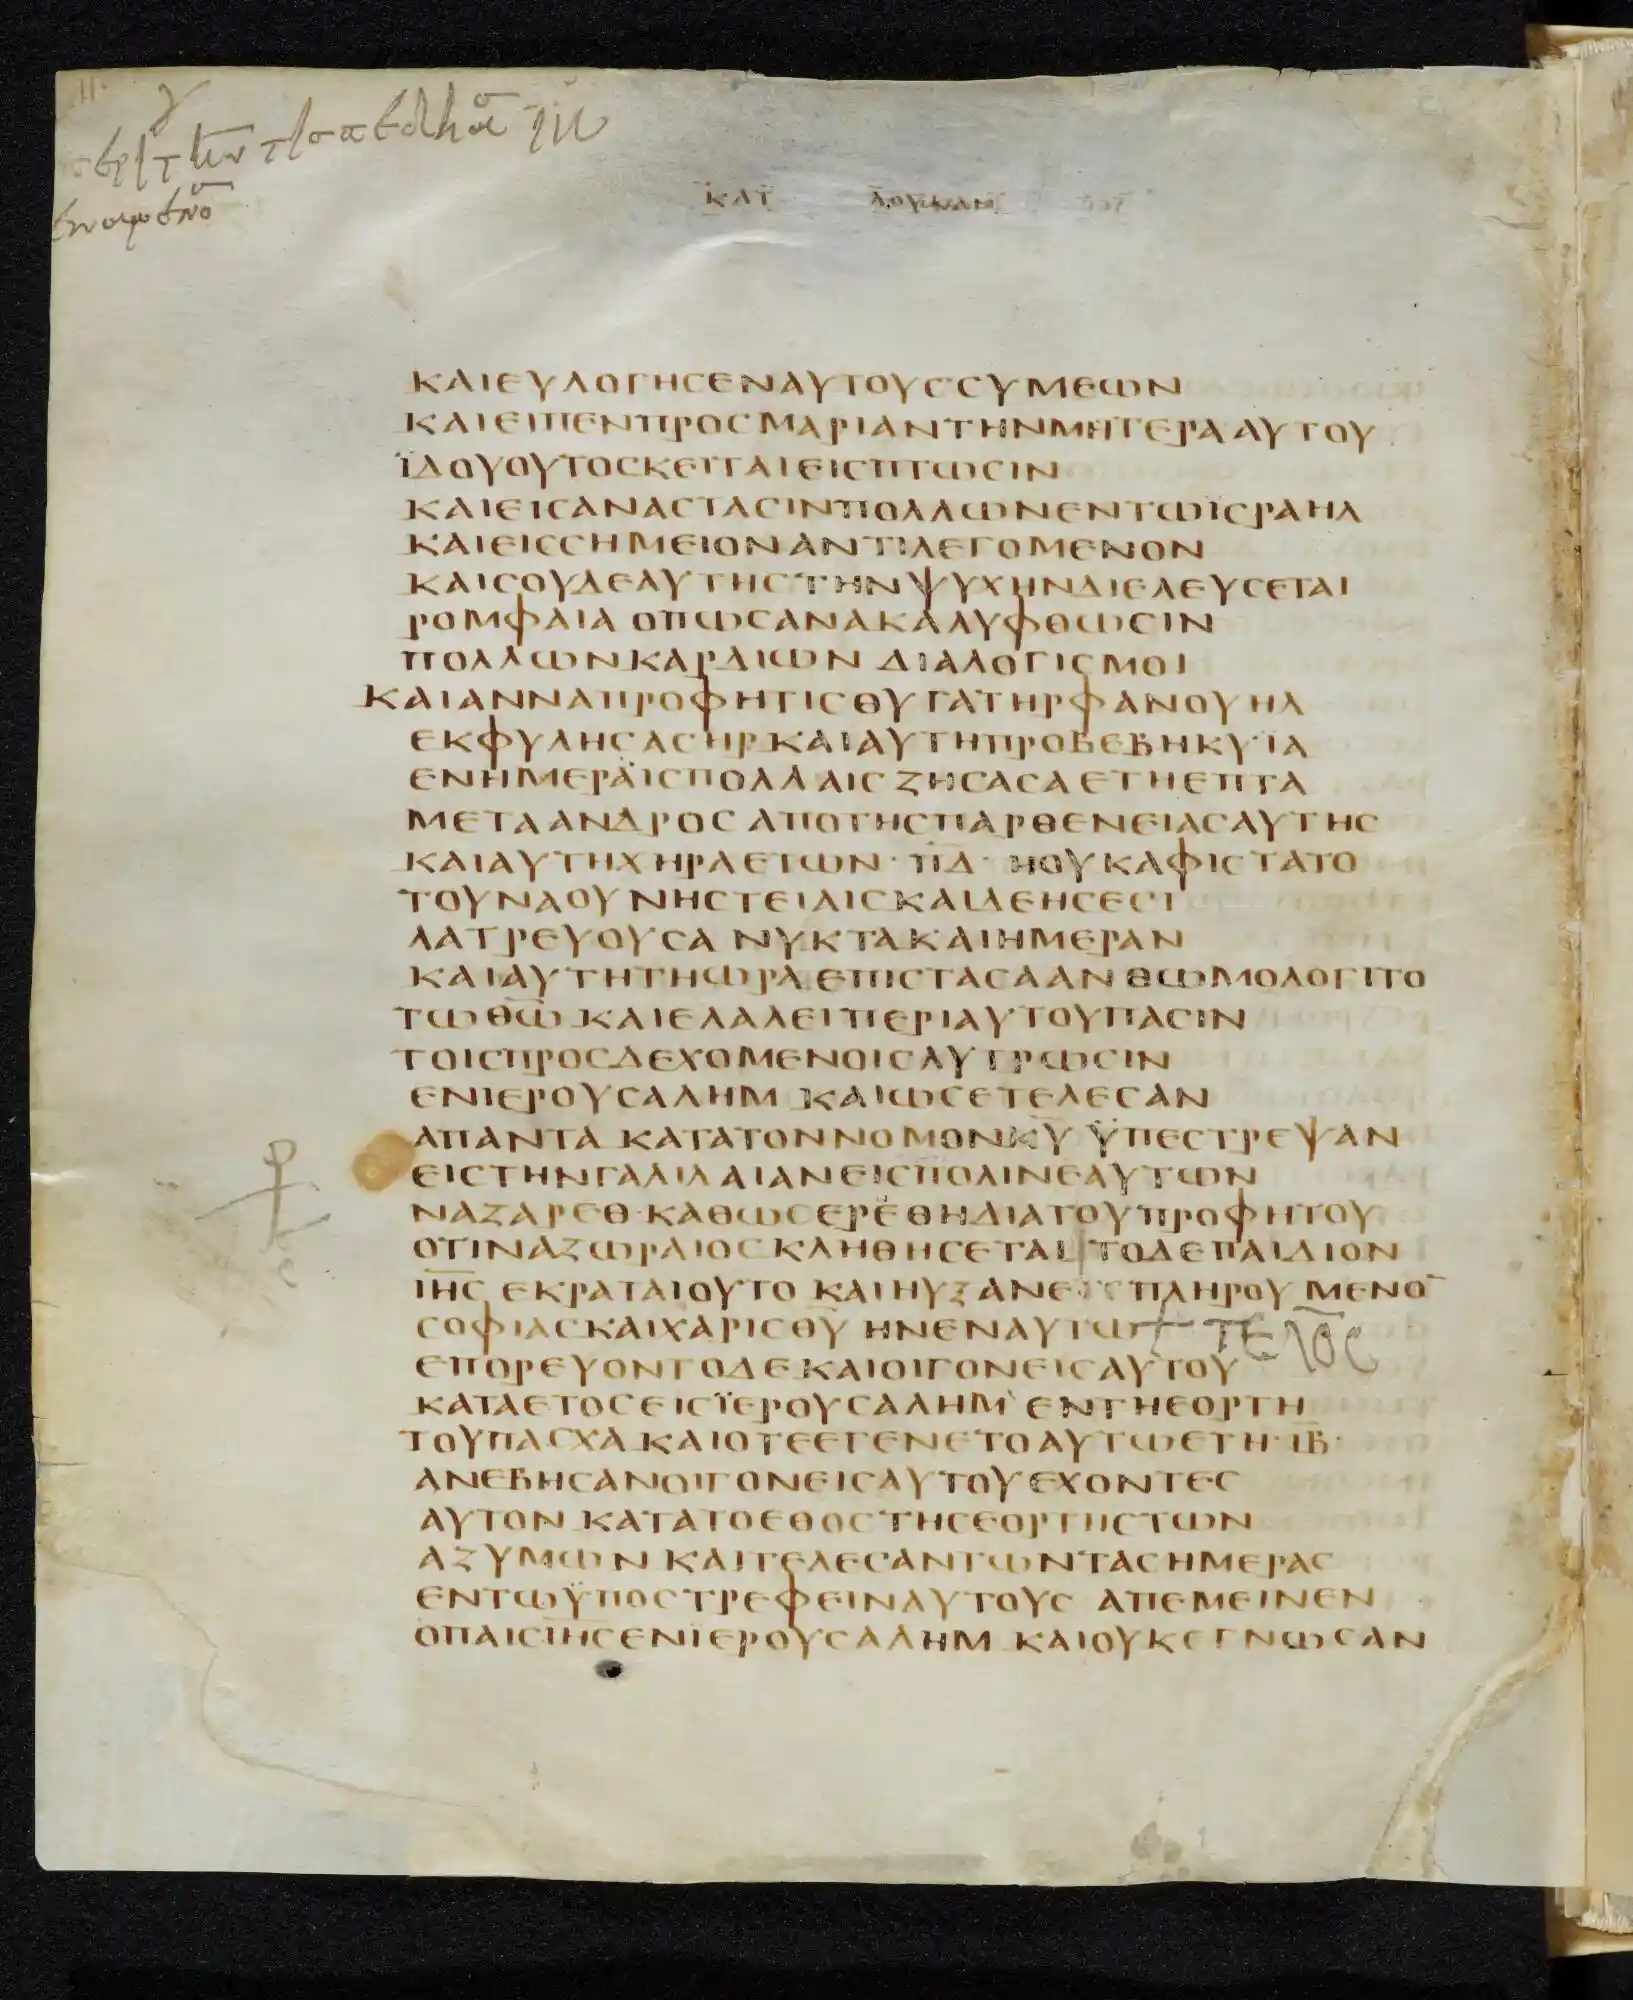 ΚΑΤ ΛΟΥΚΑΝ
ΚΑΙΕΥΛΟΓΗϹΕΝΑΥΤΟΥϹϹΥΜΕΩΝ
ΚΑΙΕΙΠΕΝΠΡΟϹΜΑΡΙΑΝΤΗΝΜΗΤΕΡΑΑΥΤΟΥ
ΪΔΟΥΟΥΤΟϹΚΕΙΤΑΙΕΙϹΠΤΩϹΙΝ
ΚΑΙΕΙϹΑΝΑϹΤΑϹΙΝΠΟΛΛΩΝΕΝΤΩΪϹΡΑΗΛ
ΚΑΙΕΙϹϹΗΜΕΙΟΝΑΝΤΙΛΕΓΟΜΕΝΟΝ
ΚΑΙϹΟΥΔΕΑΥΤΗϹΤΗΝΨΥΧΗΝΔΙΕΛΕΥϹΕΤΑΙ
ΡΟΜΦΑΙΑ ΟΠΩϹΑΝΑΚΑΛΥΦΘΩϹΙΝ
ΠΟΛΛΩΝΚΑΡΔΙΩΝ ΔΙΑΛΟΓΙϹΜΟΙ
ΚΑΙΑΝΝΑΠΡΟΦΗΤΙϹΘΥΓΑΤΗΡΦΑΝΟΥΗΛ
ΕΚΦΥΛΗϹΑϹΗΡΚΑΙΑΥΤΗΠΡΟΒΕΒΗΚΥΪΑ
ΕΝΗΜΕΡΑΙϹΠΟΛΛΑΙϹ ΖΗϹΑϹΑΕΤΗΕΠΤΑ
ΜΕΤΑΑΝΔΡΟϹ ΑΠΟΤΗϹΠΑΡΘΕΝΕΙΑϹΑΥΤΗϹ
ΚΑΙΑΥΤΗΧΗΡΑΕΤΩΝ · Π̅Δ̅ · ΗΟΥΚΑΦΙϹΤΑΤΟ
ΤΟΥΝΑΟΥ ΝΗϹΤΕΙΑΙϹΚΑΙΔΕΗϹΕϹΙ
ΛΑΤΡΕΥΟΥϹΑ ΝΥΚΤΑΚΑΙΗΜΕΡΑΝ
ΚΑΙΑΥΤΗΤΗΩΡΑΕΠΙϹΤΑϹΑΑΝΘΩΜΟΛΟΓΙΤΟ
ΤΩΘ̅Ω̅ ΚΑΙΕΛΑΛΕΙΠΕΡΙΑΥΤΟΥΠΑϹΙΝ
ΤΟΙϹΠΡΟϹΔΕΧΟΜΕΝΟΙϹΛΥΤΡΩϹΙΝ
ΕΝΙΕΡΟΥϹΑΛΗΜ ΚΑΙΩϹΕΤΕΛΕϹΑΝ
ΑΠΑΝΤΑ ΚΑΤΑΤΟΝΝΟΜΟΝΚ̅Υ̅ ΫΠΕϹΤΡΕΨΑΝ
ΕΙϹΤΗΝΓΑΛΙΛΑΙΑΝΕΙϹΠΟΛΙΝΕΑΥΤΩΝ
ΝΑΖΑΡΕΘ·ΚΑΘΩϹΕΡΕΘΗΔΙΑΤΟΥΠΡΟΦΗΤΟΥ
ΟΤΙΝΑΖΩΡΑΙΟϹΚΛΗΘΗϹΕΤΑΙ ΤΟΔΕΠΑΙΔΙΟΝ
Ι̅Η̅Ϲ̅ ΕΚΡΑΤΑΙΟΥΤΟ ΚΑΙΗΥΞΑΝΕ ΠΛΗΡΟΥΜΕΝΟ̅
ϹΟΦΙΑϹΚΑΙΧΑΡΙϹΘ̅Υ̅ ΗΝΕΝΑΥΤΩ ΤΕΛΟϹ
ΕΠΟΡΕΥΟΝΤΟΔΕΚΑΙΟΙΓΟΝΕΙϹΑΥΤΟΥ
ΚΑΤΑΕΤΟϹΕΙϹΪΕΡΟΥϹΑΛΗΜ ΕΝΤΗΕΟΡΤΗ
ΤΟΥΠΑϹΧΑ ΚΑΙΟΤΕΕΓΕΝΕΤΟΑΥΤΩΕΤΗ·Ι̅Β̅·
ΑΝΕΒΗϹΑΝΟΙΓΟΝΕΙϹΑΥΤΟΥΕΧΟΝΤΕϹ
ΑΥΤΟΝ ΚΑΤΑΤΟΕΘΟϹΤΗϹΕΟΡΤΗϹΤΩΝ
ΑΖΥΜΩΝ ΚΑΙΤΕΛΕϹΑΝΤΩΝΤΑϹΗΜΕΡΑϹ
ΕΝΤΩΫΠΟϹΤΡΕΦΕΙΝΑΥΤΟΥϹ ΑΠΕΜΕΙΝΕΝ
ΟΠΑΙϹΙ̅Η̅Ϲ̅ΕΝΪΕΡΟΥϹΑΛΗΜ ΚΑΙΟΥΚΕΓΝΩϹΑΝ